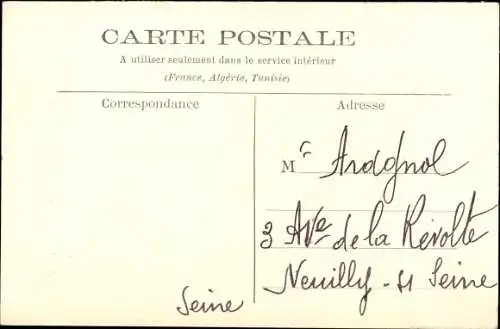 CARTE POSTALE
A utiliser seulement dans le service intérieur
(France, Algérie, Tunisie)
Correspondance
Adresse
Mr Aragnol
3 Ave de la Révolte
Neuilly - s/ Seine
Seine